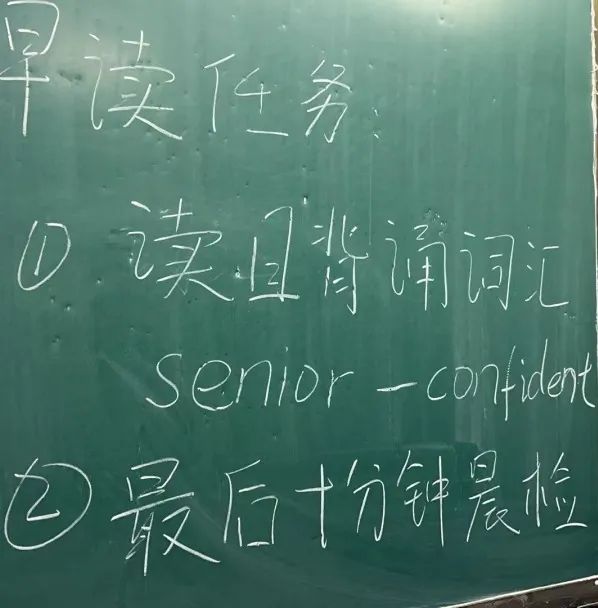 早读任务:
① 读且背诵词汇
senior - confident
② 最后十分钟晨检